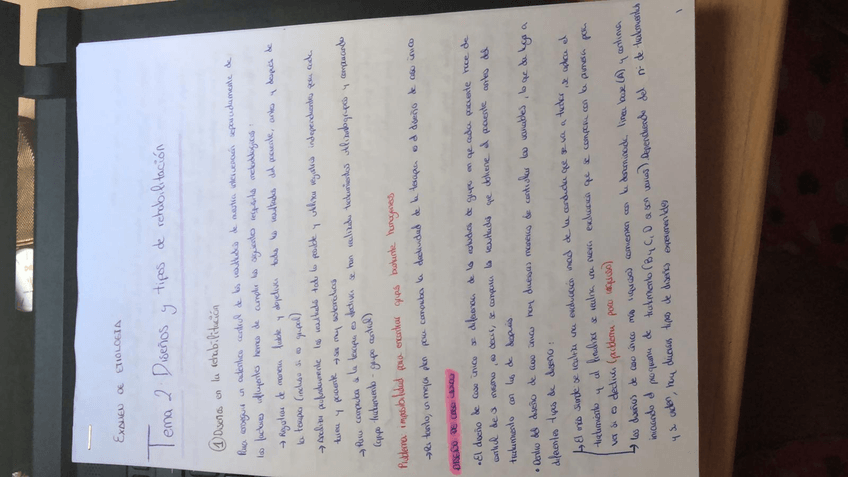 EXAMEN DE ETIOLOGÍA
Tema 2: Diseños y tipos de rehabilitación
① Diseños en la rehabilitación
Para conseguir un auténtico control de los resultados de nuestra intervención separadamente de
los factores influyentes hemos de cumplir los siguientes requisitos metodológicos:
→ Registrar de manera fiable y objetiva todos los resultados del paciente, antes y después de
la terapia (incluso si es grupal)
→ Analizar profundamente los resultados todo lo posible y utilizar registros independientes para cada
tarea y paciente
→ Para comprobar si la terapia es efectiva se han utilizado tratamientos y comparando
(grupo tratamiento - grupo control)
Problema: imposibilidad para encontrar grupos bastante homogéneos
→ Por tanto, un mejor plan para comprobar la efectividad de la terapia es el diseño de caso único
DISEÑO DE CASO ÚNICO
• El diseño de caso único se diferencia de los estudios de grupo en que cada paciente hace de
control de sí mismo, es decir, se comparan los resultados que obtiene el paciente antes del
tratamiento con los de después
• Dentro del diseño de caso único hay diversas maneras de controlar las variables, lo que da lugar a
diferentes tipos de diseño:
↳ El más simple se realiza una evaluación inicial de la conducta que se va a tratar, se aplica el
tratamiento y al finalizar se realiza una nueva evaluación que se compara con la primera para
ver si es efectivo (problema: poco riguroso)
→ Los diseños de caso único más rigurosos comienzan con la denominada línea base (A) y continúa
iniciando el programa de tratamiento (B y C, D si son varios). Dependiendo del nº de tratamientos
y su orden, hay diversos tipos de diseños experimentales
1